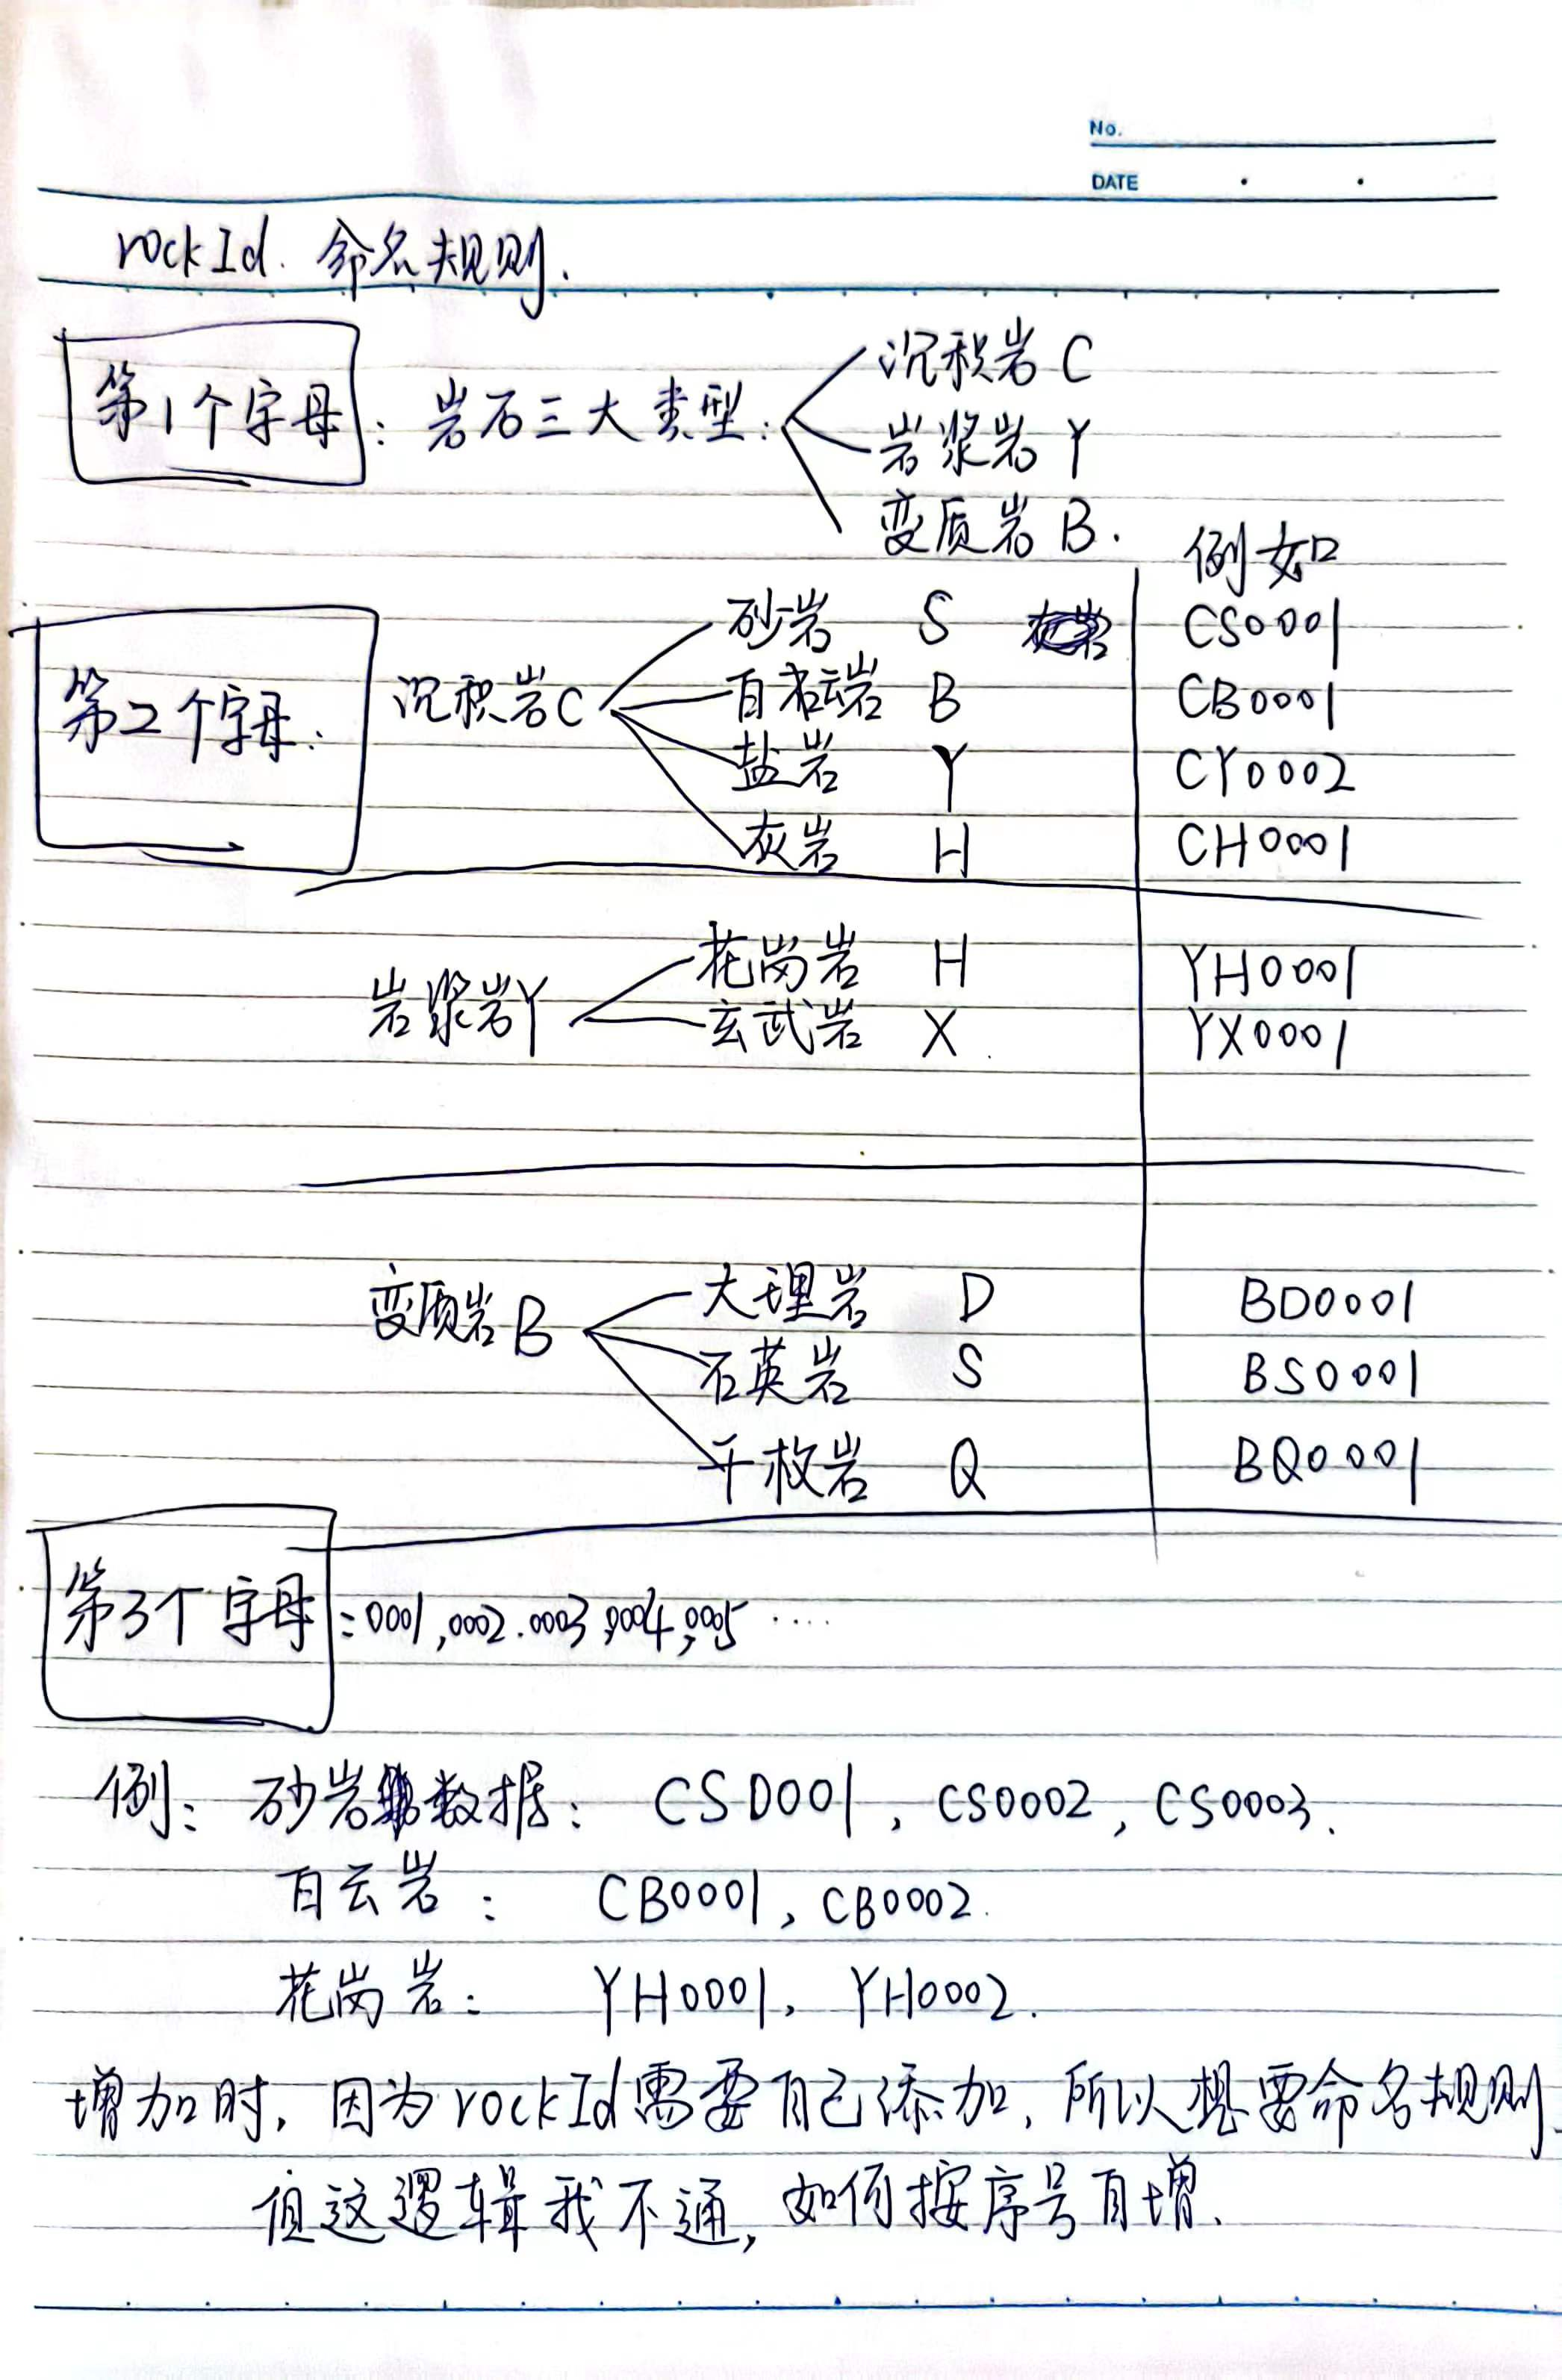 No.
DATE
rockId. 命名规则.
第1个字母: 岩石三大类型: 沉积岩 C
岩浆岩 Y
变质岩 B.
例如
第2个字母: 沉积岩C 砂岩 S CS0001
白云岩 B CB0001
盐岩 Y CY0002
灰岩 H CH0001
岩浆岩Y 花岗岩 H YH0001
玄武岩 X YX0001
变质岩 B 大理岩 D BD0001
石英岩 S BS0001
千枚岩 Q BQ0001
第3个字母: 0001,0002.0003,0004,0005 ····
例: 砂岩数据: CS0001, CS0002, CS0003.
白云岩: CB0001, CB0002.
花岗岩: YH0001, YH0002.
增加时, 因为rockId需要自己添加, 所以想要命名规则.
但这逻辑我不通, 如何按序号自增.